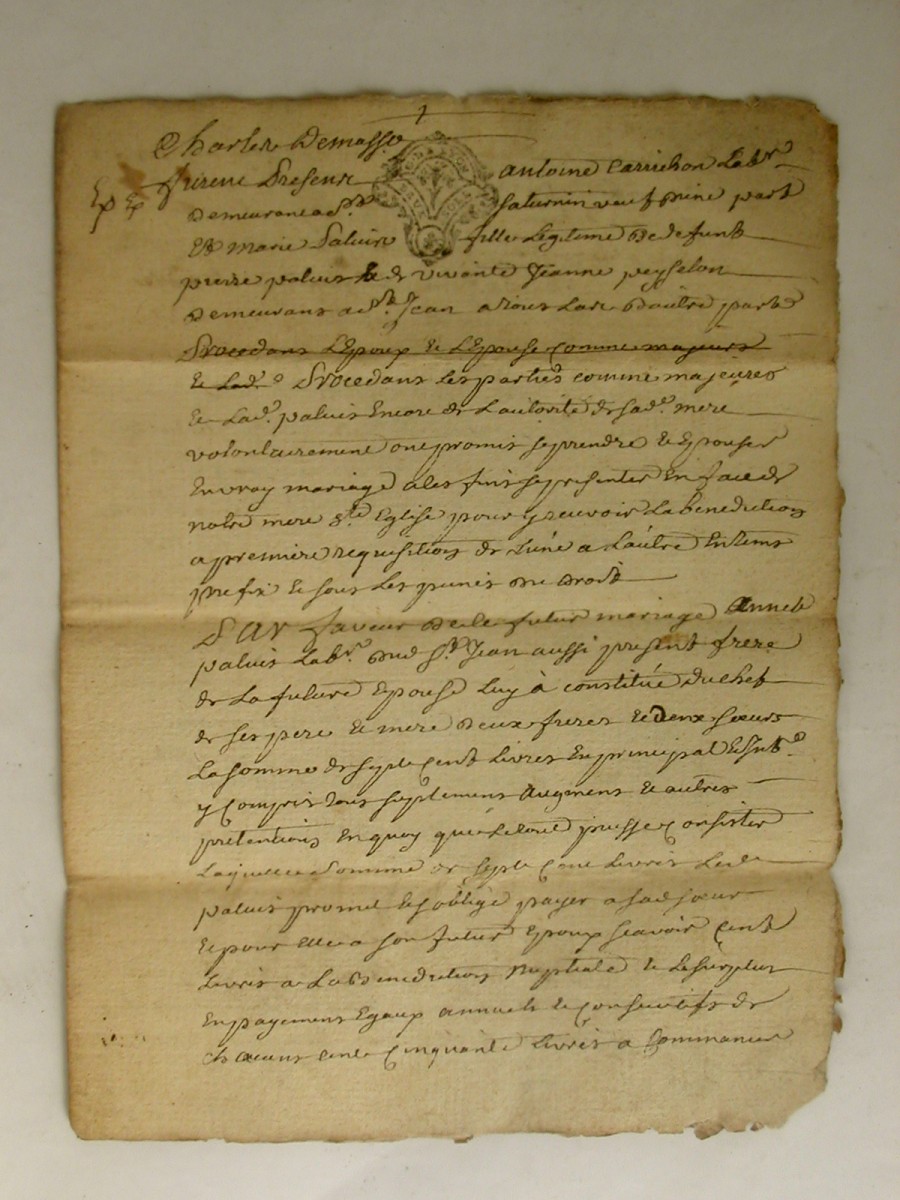 Charles Demasso
furent Presens antoine Carrichon Labr.
Demeurant a St. Saturnin veuf d'une part
Et marie Paluis fille Legitime de defunt
pierre paluis & de vivante Jeanne peysselon
Demeurans a St. Jean atous Las d'autre part
Procedans L'Epoux Et L'Epouse comme majeurs
Et Lad.e Procedans Les parties comme majeures
Et Lad.e paluis Encore de L'autorité de sad.e mere
volontairement ont promis se prendre Et Epouser
En vray mariage a Les fins se presenter En face de
notre mere Ste Eglise pour y recevoir La benediction
a premiere requisition de L'une a L'autre En tems
prefix Et sous Les peines de Droit
En faveur de ce futur mariage
paluis Labr. dud St. Jean aussi present frere
de La future Epouse Luy à constitué du chef
de ses pere Et mere deux freres Et deux soeurs
La somme de sept cent Livres En principal Et Int.
y compris tous suplement augment Et autres
pretentions En quoy que Le tout puisse consister
Laquelle somme de sept cent Livres Led.
paluis promet Et s'oblige payer a sad. soeur
Et pour Elle a son futur Epoux scavoir Cent
Livres a La Benediction Nuptiale Et Le surplus
En payemens Egaux annuels Et consecutifs de
chacuns cent Cinquante Livres a Commancer